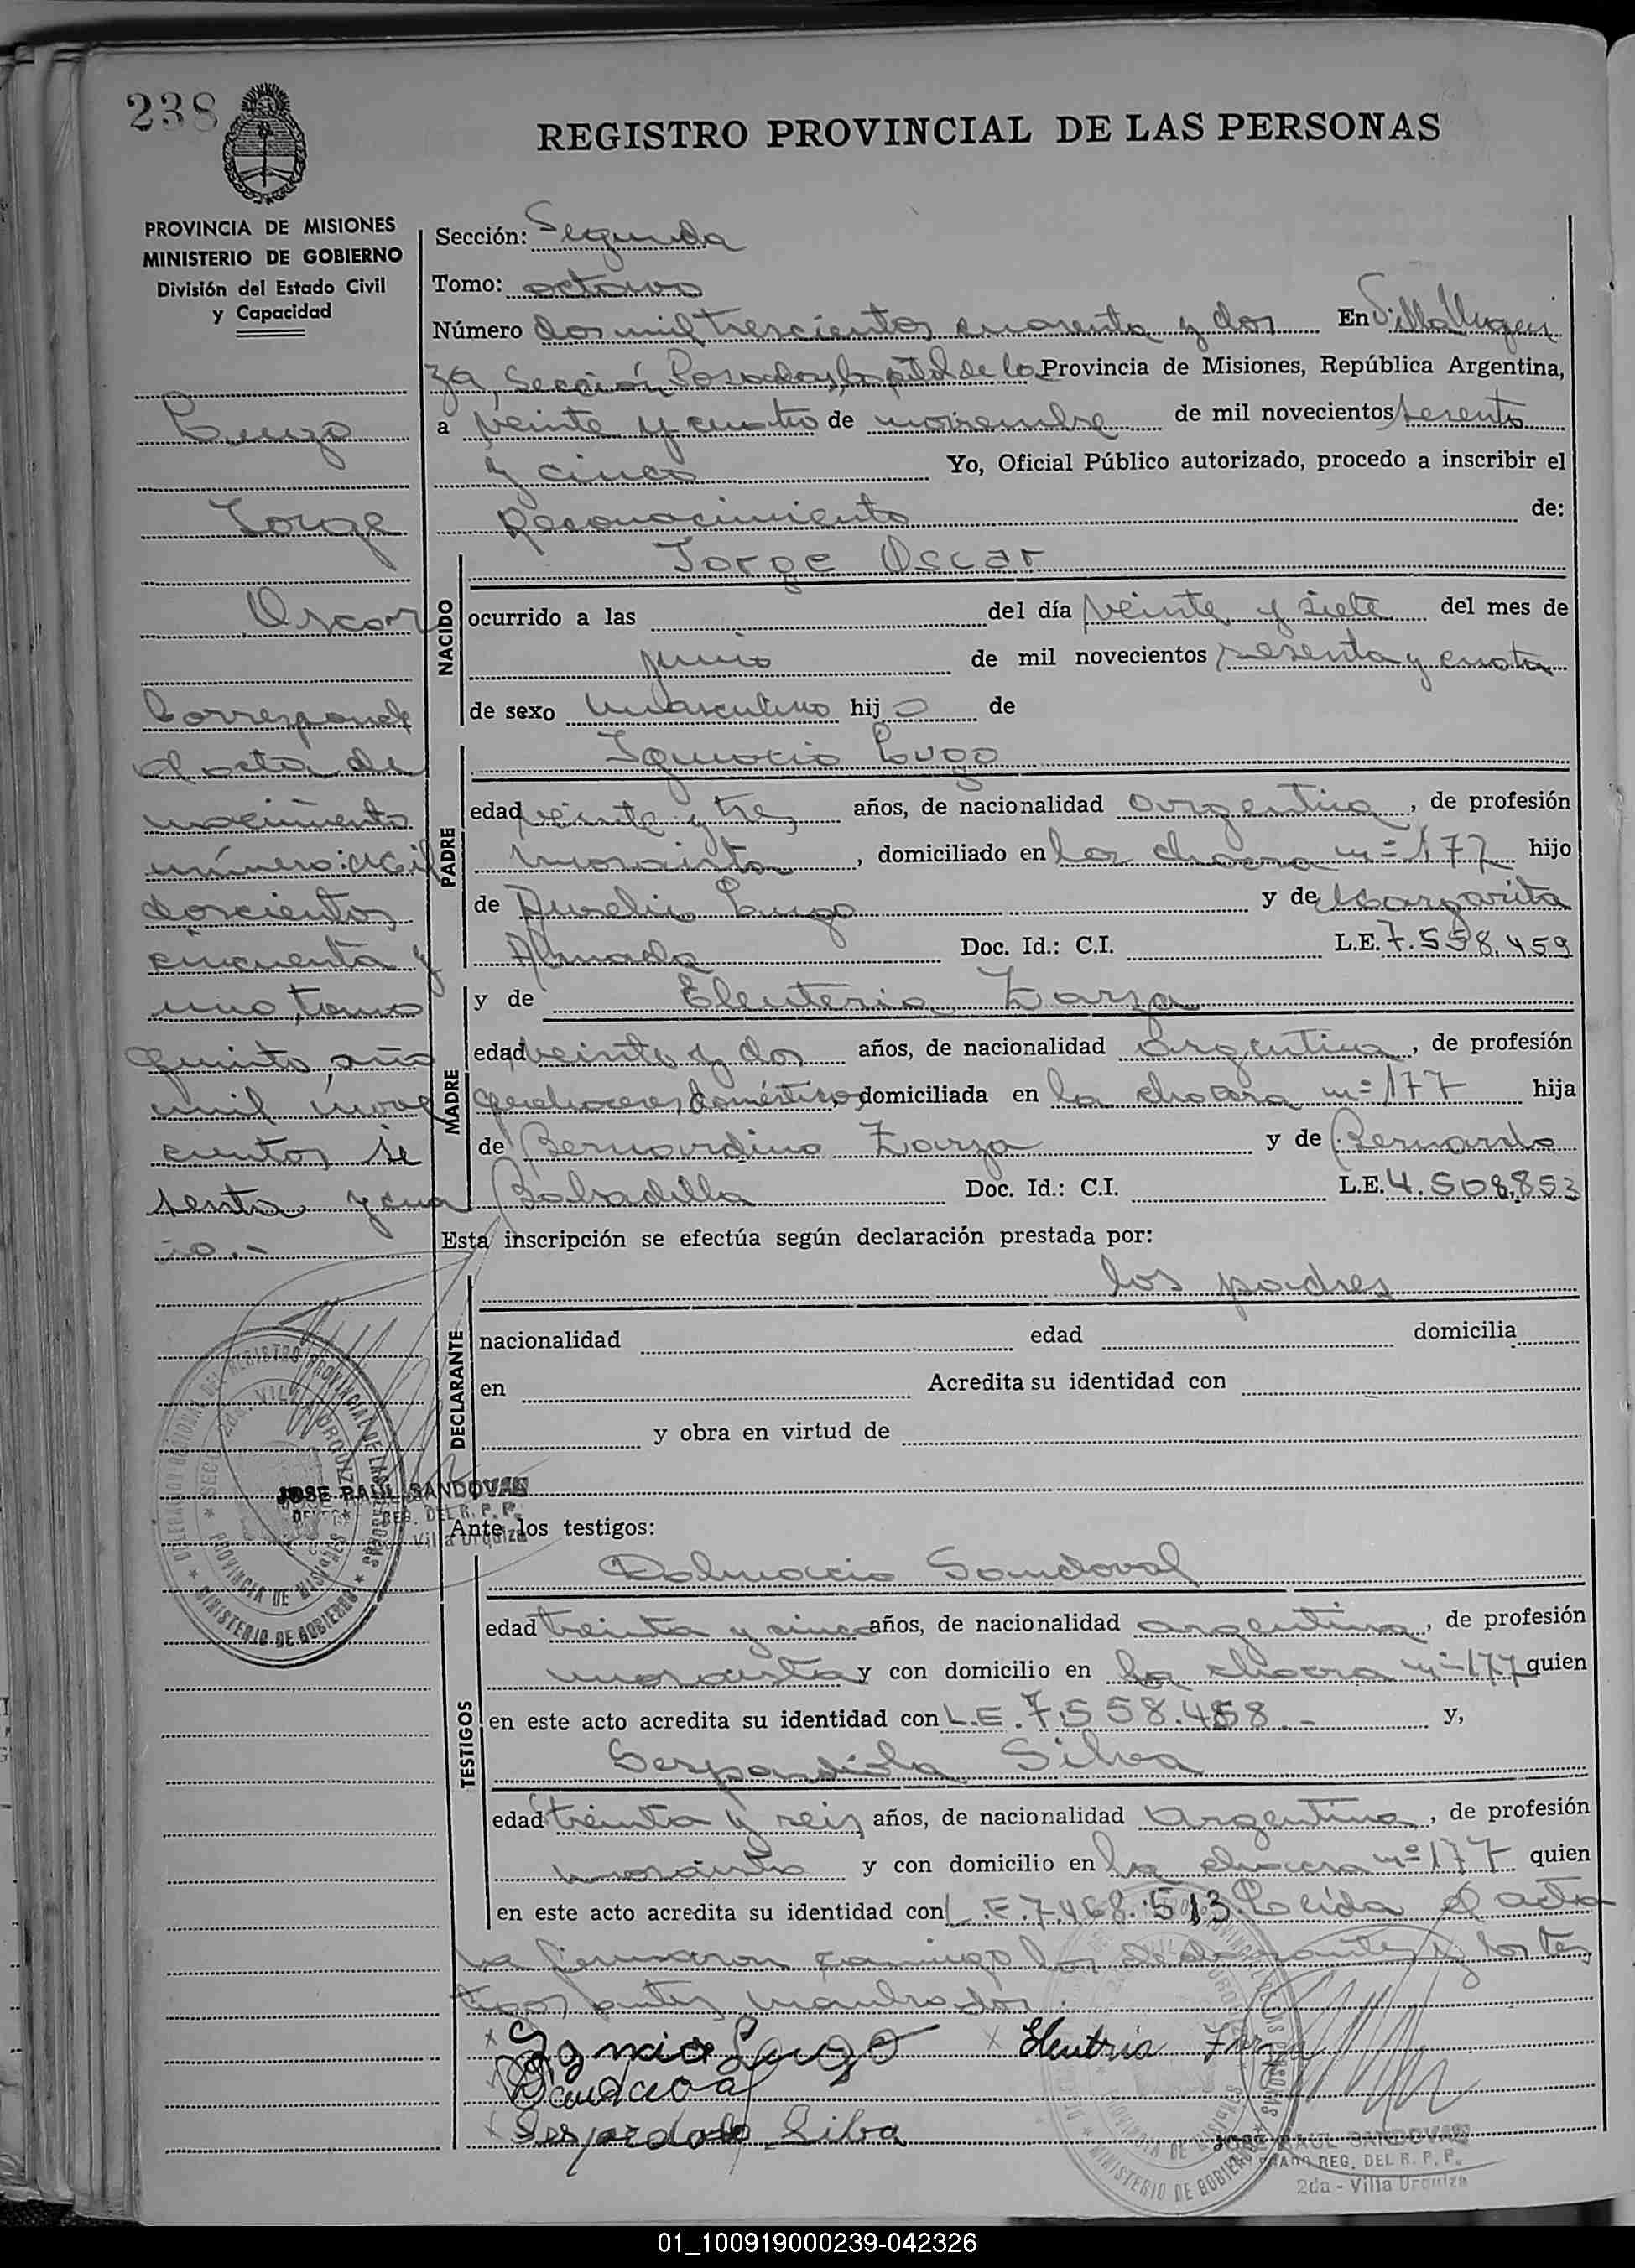 238
REGISTRO PROVINCIAL DE LAS PERSONAS
PROVINCIA DE MISIONES
MINISTERIO DE GOBIERNO
División del Estado Civil
y Capacidad
Lugo
Jorge
Oscar
Corresponde
al acta de
nacimiento
número: mil
doscientos
cincuenta y
uno, tomo
quinto, año
mil nove
cientos se
senta y cua
JOSE RAUL SANDOVAL
REG. DEL R. P. P.
Villa Urquiza
Sección: Segunda
Tomo: octavo
Número dos mil trescientos cuarenta y dos En Villa Urqui
za, Sección Posadas, Capital de la Provincia de Misiones, República Argentina,
a veinte y cuatro de noviembre de mil novecientos sesenta
y cinco Yo, Oficial Público autorizado, procedo a inscribir el
Reconocimiento de:
NACIDO
Jorge Oscar
ocurrido a las del día veinte y siete del mes de
junio de mil novecientos sesenta y cuatro
de sexo masculino hijo de
PADRE
Ignacio Lugo
edad veinte y tres años, de nacionalidad argentina, de profesión
mosaista, domiciliado en la chacra nº 177 hijo
de Aurelio Lugo y de Margarita
Almada Doc. Id.: C.I. L.E. 7.558.459
MADRE
y de Eleuteria Zarza
edad veinte y dos años, de nacionalidad argentina, de profesión
quehaceres domésticos, domiciliada en la chacra nº 177 hija
de Bernardino Zarza y de Bernarda
Bobadilla Doc. Id.: C.I. L.E. 4.508.853
Esta inscripción se efectúa según declaración prestada por:
DECLARANTE
los padres
nacionalidad edad domicilia
en Acredita su identidad con
y obra en virtud de
Ante los testigos:
TESTIGOS
Dalmacio Sandoval
edad treinta y cinco años, de nacionalidad argentina, de profesión
mosaista y con domicilio en la chacra nº 177 quien
en este acto acredita su identidad con L.E. 7.558.458.- y,
Silva
edad treinta y seis años, de nacionalidad argentina, de profesión
mosaista y con domicilio en la chacra nº 177 quien
en este acto acredita su identidad con L.E. 7.468.513. Leida el acta
la firmaron conmigo los declarantes y los tes
tigos antes nombrados.
x Lugo x Eleutria
x Silba
JOSE RAUL SANDOVAL
REG. DEL R. P. P.
2da - Villa Urquiza
01_100919000239-042326